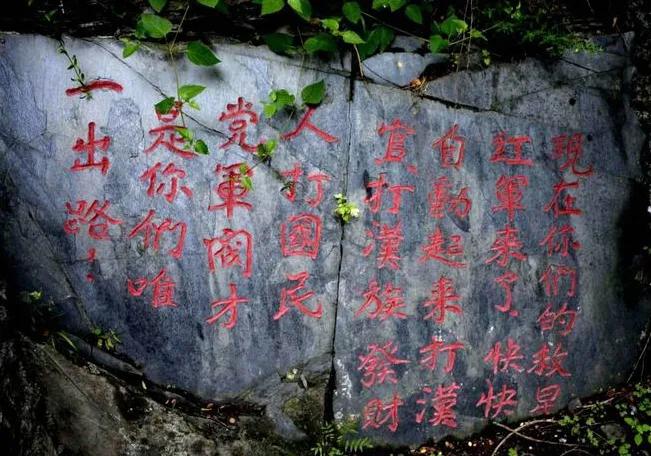 現在你們的救星
红軍来了、快快
自動起来打漢
官、打漢族發財
人打國民
党軍阀才
是你們唯
一出路！